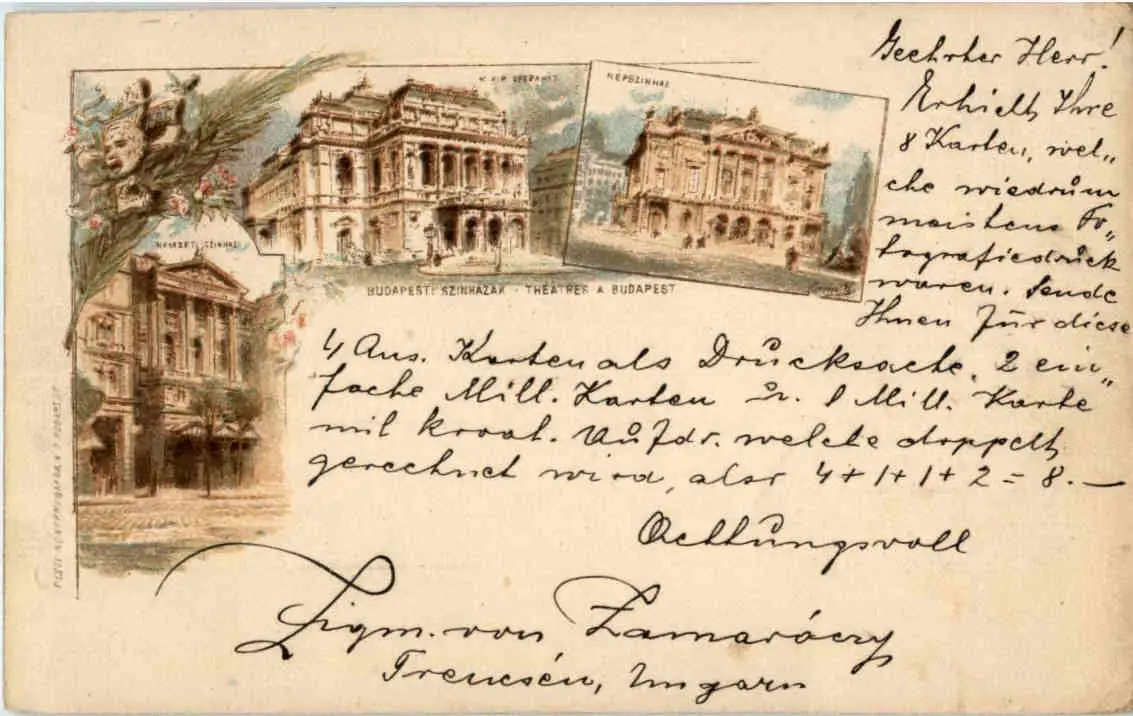 M. KIR. OPERAHÁZ
NÉPSZINHÁZ
NEMZETI SZINHÁZ
BUDAPESTI SZINHÁZAK - THÉATRES A BUDAPEST
Geehrter Herr!
Erhielt Ihre
8 Karten, wel„
che wiedrŭm
meistens Fo„
tografiedrŭck
waren. Sende
Ihnen für diese
4 Ans. Karten als Drŭcksache, 2 ein„
fache Mill. Karten ŭ. 1 Mill. Karte
mit kroat. Aŭfdr. welche doppelt
gerechnet wird, also 4+1+1+2=8.—
Achtŭngsvoll
Sigm. von Zamaróczy
Trencsén, Ungarn